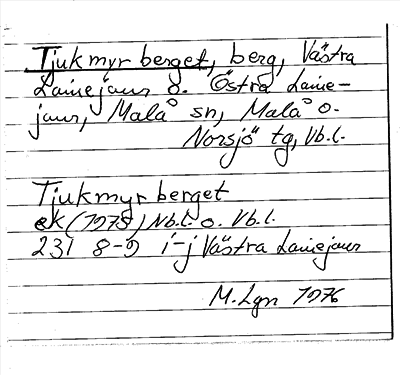 Tjukmyrberget, berg, Västra
Lainejaur o. Östra Laine-
jaur, Malå sn, Malå o.
Norsjö tg, Vb.l.
Tjukmyrberget
ek (1978) Nb.l. o. Vb.l.
231 8-9 i-j Västra Lainejaur
M. Lgn 1976